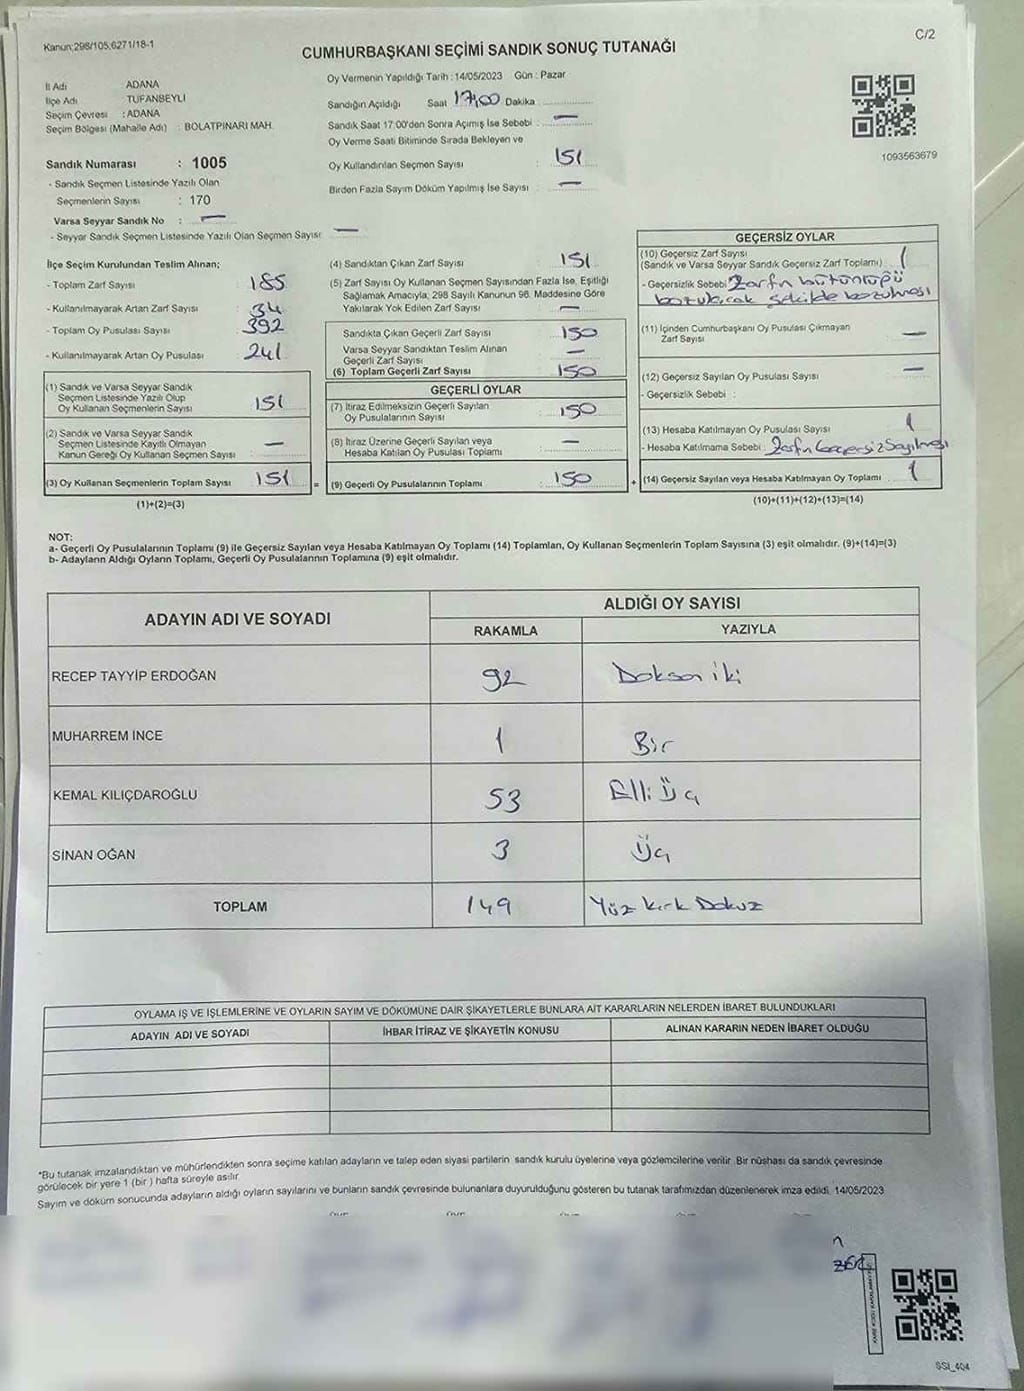 Kanun:298/105,6271/18-1
C/2
CUMHURBAŞKANI SEÇİMİ SANDIK SONUÇ TUTANAĞI
İl Adı ADANA
İlçe Adı TUFANBEYLİ
Seçim Çevresi : ADANA
Seçim Bölgesi (Mahalle Adı) : BOLATPINARI MAH.
Sandık Numarası : 1005
- Sandık Seçmen Listesinde Yazılı Olan
Seçmenlerin Sayısı : 170
Varsa Seyyar Sandık No : —
- Seyyar Sandık Seçmen Listesinde Yazılı Olan Seçmen Sayısı: —
Oy Vermenin Yapıldığı Tarih : 14/05/2023 Gün : Pazar
Sandığın Açıldığı Saat 17:00 Dakika
Sandık Saat 17:00'den Sonra Açımış İse Sebebi : —
Oy Verme Saati Bitiminde Sırada Bekleyen ve
Oy Kullandırılan Seçmen Sayısı : 151
Birden Fazla Sayım Döküm Yapılmış İse Sayısı : —
1093563679
İlçe Seçim Kurulundan Teslim Alınan;
- Toplam Zarf Sayısı : 185
- Kullanılmayarak Artan Zarf Sayısı : 34
- Toplam Oy Pusulası Sayısı : 392
- Kullanılmayarak Artan Oy Pusulası : 241
(1) Sandık ve Varsa Seyyar Sandık
Seçmen Listesinde Yazılı Olup
Oy Kullanan Seçmenlerin Sayısı : 151
(2) Sandık ve Varsa Seyyar Sandık
Seçmen Listesinde Kayıtlı Olmayan
Kanun Gereği Oy Kullanan Seçmen Sayısı : —
(3) Oy Kullanan Seçmenlerin Toplam Sayısı : 151
(1)+(2)=(3)
(4) Sandıktan Çıkan Zarf Sayısı : 151
(5) Zarf Sayısı Oy Kullanan Seçmen Sayısından Fazla İse, Eşitliği
Sağlamak Amacıyla; 298 Sayılı Kanunun 98. Maddesine Göre
Yakılarak Yok Edilen Zarf Sayısı : —
Sandıkta Çıkan Geçerli Zarf Sayısı : 150
Varsa Seyyar Sandıktan Teslim Alınan
Geçerli Zarf Sayısı : —
(6) Toplam Geçerli Zarf Sayısı : 150
GEÇERLİ OYLAR
(7) İtiraz Edilmeksizin Geçerli Sayılan
Oy Pusulalarının Sayısı : 150
(8) İtiraz Üzerine Geçerli Sayılan veya
Hesaba Katılan Oy Pusulası Toplamı : —
= (9) Geçerli Oy Pusulalarının Toplamı : 150
GEÇERSİZ OYLAR
(10) Geçersiz Zarf Sayısı : 1
(Sandık ve Varsa Seyyar Sandık Geçersiz Zarf Toplamı)
- Geçersizlik Sebebi : Zarfın bütünlüğü
bozulacak şekilde bozulması
(11) İçinden Cumhurbaşkanı Oy Pusulası Çıkmayan
Zarf Sayısı : —
(12) Geçersiz Sayılan Oy Pusulası Sayısı : —
- Geçersizlik Sebebi :
(13) Hesaba Katılmayan Oy Pusulası Sayısı : 1
- Hesaba Katılmama Sebebi : Zarfın Geçersiz Sayılması
+ (14) Geçersiz Sayılan veya Hesaba Katılmayan Oy Toplamı : 1
(10)+(11)+(12)+(13)=(14)
NOT:
a- Geçerli Oy Pusulalarının Toplamı (9) ile Geçersiz Sayılan veya Hesaba Katılmayan Oy Toplamı (14) Toplamları, Oy Kullanan Seçmenlerin Toplam Sayısına (3) eşit olmalıdır. (9)+(14)=(3)
b- Adayların Aldığı Oyların Toplamı, Geçerli Oy Pusulalarının Toplamına (9) eşit olmalıdır.
ADAYIN ADI VE SOYADI
ALDIĞI OY SAYISI
RAKAMLA YAZIYLA
RECEP TAYYİP ERDOĞAN 92 Doksan iki
MUHARREM İNCE 1 Bir
KEMAL KILIÇDAROĞLU 53 Elli Üç
SİNAN OĞAN 3 Üç
TOPLAM 149 Yüz kırk Dokuz
OYLAMA İŞ VE İŞLEMLERİNE VE OYLARIN SAYIM VE DÖKÜMÜNE DAİR ŞİKAYETLERLE BUNLARA AİT KARARLARIN NELERDEN İBARET BULUNDUKLARI
ADAYIN ADI VE SOYADI İHBAR İTİRAZ VE ŞİKAYETİN KONUSU ALINAN KARARIN NEDEN İBARET OLDUĞU
*Bu tutanak imzalandıktan ve mühürlendikten sonra seçime katılan adayların ve talep eden siyasi partilerin sandık kurulu üyelerine veya gözlemcilerine verilir. Bir nüshası da sandık çevresinde
görülecek bir yere 1 (bir) hafta süreyle asılır.
Sayım ve döküm sonucunda adayların aldığı oyların sayılarını ve bunların sandık çevresinde bulunanlara duyurulduğunu gösteren bu tutanak tarafımızdan düzenlenerek imza edildi. 14/05/2023
SSI_404